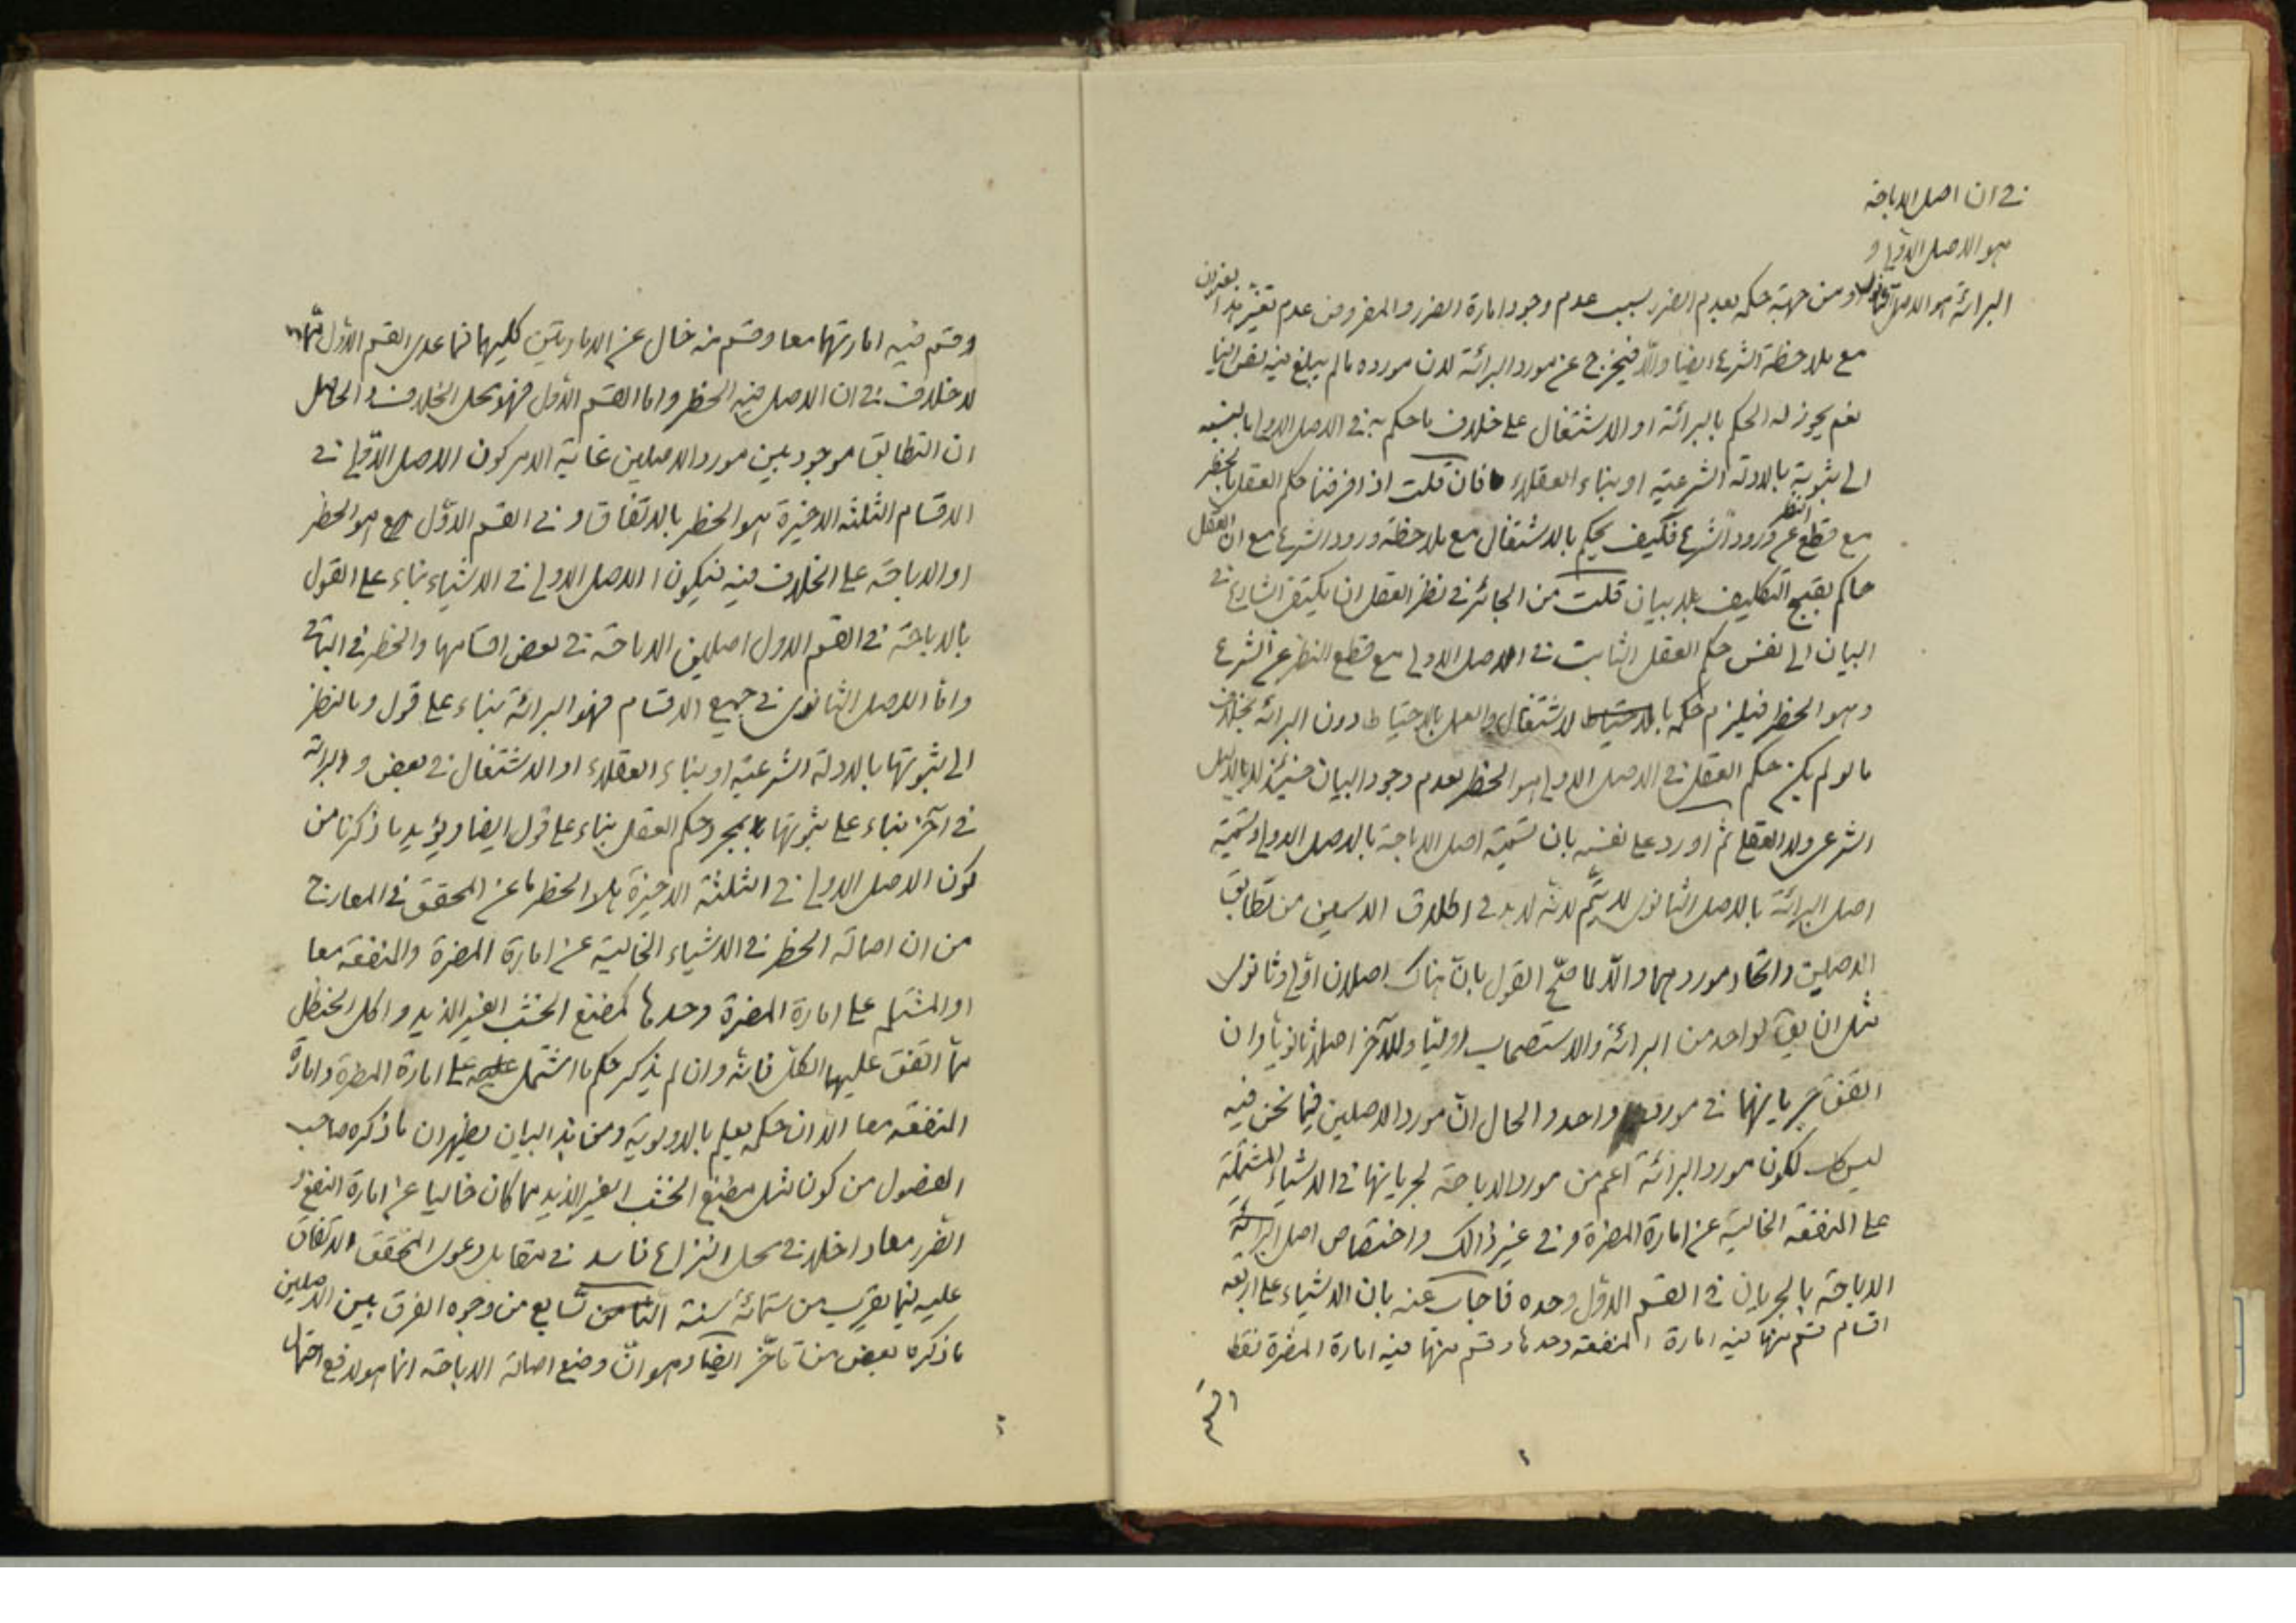 في ان اصل الاباحة
هو الاصل الاولي و
البرائة هو الاصل الثانوي و من جهة حكمه بعدم الضرر بسبب عدم وجود امارة الضرر والمفروض عدم تغير هذا بعنوان
مع ملاحظة الشرع ايضا والا فيخرج عن مورد البرائة لان مورده ما لم يبلغ فيه نص ايضا
نعم يجوز له الحكم بالبرائة او الاشتغال على خلاف ما حكم به في الاصل الاولي بالنسبة
الى ثبوته بالادلة الشرعية او بناء العقلاء فان قلت اذا فرضنا حكم العقل بالحظر
مع قطع النظر عن ورود الشرع فكيف يحكم بالاشتغال مع ملاحظة ورود الشرع مع ان العقل
حاكم بقبح التكليف بلا بيان قلت من الجائز في نظر العقل ان يكتفي الشارع في
البيان الى نفس حكم العقل الثابت في الاصل الاولي مع قطع النظر عن الشرع
وهو الحظر فيلزم حكمه بالاشتغال والعمل بالاحتياط دون البرائة بخلاف
ما لو لم يكن حكم العقل في الاصل الاولي هو الحظر لعدم وجود البيان حينئذ لا بالدليل
الشرعي ولا العقلي ثم اورد على نفسه بان تسمية اصل الاباحة بالاصل الاولي وتسمية
اصل البرائة بالاصل الثانوي لا يتم لانه لا بد في اطلاق الاسمين من تطابق
الاصلين واتحاد موردهما والا لما صح القول بان هناك اصلان اولي وثانوي
مثل ان يق لواحد من البرائة والاستصحاب اوليا وللآخر اصلا ثانويا وان
اتفق جريانهما في مورد واحد والحال ان مورد الاصلين فيما نحن فيه
ليس كك لكون مورد البرائة اعم من مورد الاباحة لجريانها في الاشياء المشتملة
على المنفعة الخالية عن امارة المضرة و في غير ذالك واختصاص اصل البرائة
الاباحة بالجريان في القسم الاول وحده فاجاب عنه بان الاشياء على اربعة
اقسام قسم منها فيه امارة المنفعة وحدها وقسم منها فيه امارة المضرة فقط
وقسم
وقسم فيه امارتهما معا وقسم منه خال عن الامارتين كليهما فما عدى القسم الاول مما
لا خلاف في ان الاصل فيه الحظر واما القسم الاول فهو محل الخلاف والحاصل
ان التطابق موجود بين مورد الاصلين غاية الامر كون الاصل الاولي في
الاقسام الثلثة الاخيرة هو الحظر بالاتفاق و في القسم الاول هو الحظر
او الاباحة على الخلاف فيه فيكون الاصل الاولي في الاشياء بناء على القول
بالاباحة في القسم الاول اصلين الاباحة في بعض اقسامها والحظر في الباقي
واما الاصل الثانوي في جميع الاقسام فهو البرائة بناء على قول وبالنظر
الى ثبوتها بالادلة الشرعية او بناء العقلاء او الاشتغال في بعض والبرائة
في آخر بناء على ثبوتها بمجرد حكم العقل بناء على قول ايضا ويؤيد ما ذكرنا من
كون الاصل الاولي في الثلثة الاخيرة هو الحظر ما عن المحقق في المعارج
من ان اصالة الحظر في الاشياء الخالية عن امارة المضرة والمنفعة معا
او المشتملة على امارة المضرة وحدها كمضغ الخشب الغير اللذيذ واكل الحنظل
مما اتفق عليها الكل فانه وان لم يذكر حكم ما اشتمل على امارة المضرة وامارة
المنفعة معا الا ان حكمه يعلم بالاولوية ومن هذا البيان يظهر ان ما ذكره صاحب
الفصول من كون مثل مضغ الخشب الغير اللذيذ مما كان خاليا عن امارة النفع و
الضرر معا داخلا في محل النزاع فاسد في مقابل دعوى المحقق الاتفاق
عليه فيما يقرب من ستمائة سنة الثامن تسابع من وجوه الفرق بين الاصلين
ما ذكره بعض من تاخر ايضا وهو ان وضع اصالة الاباحة انما هو لدفع احتمال